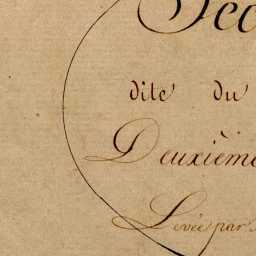 Sec
dite du
Deuxième
Levée par